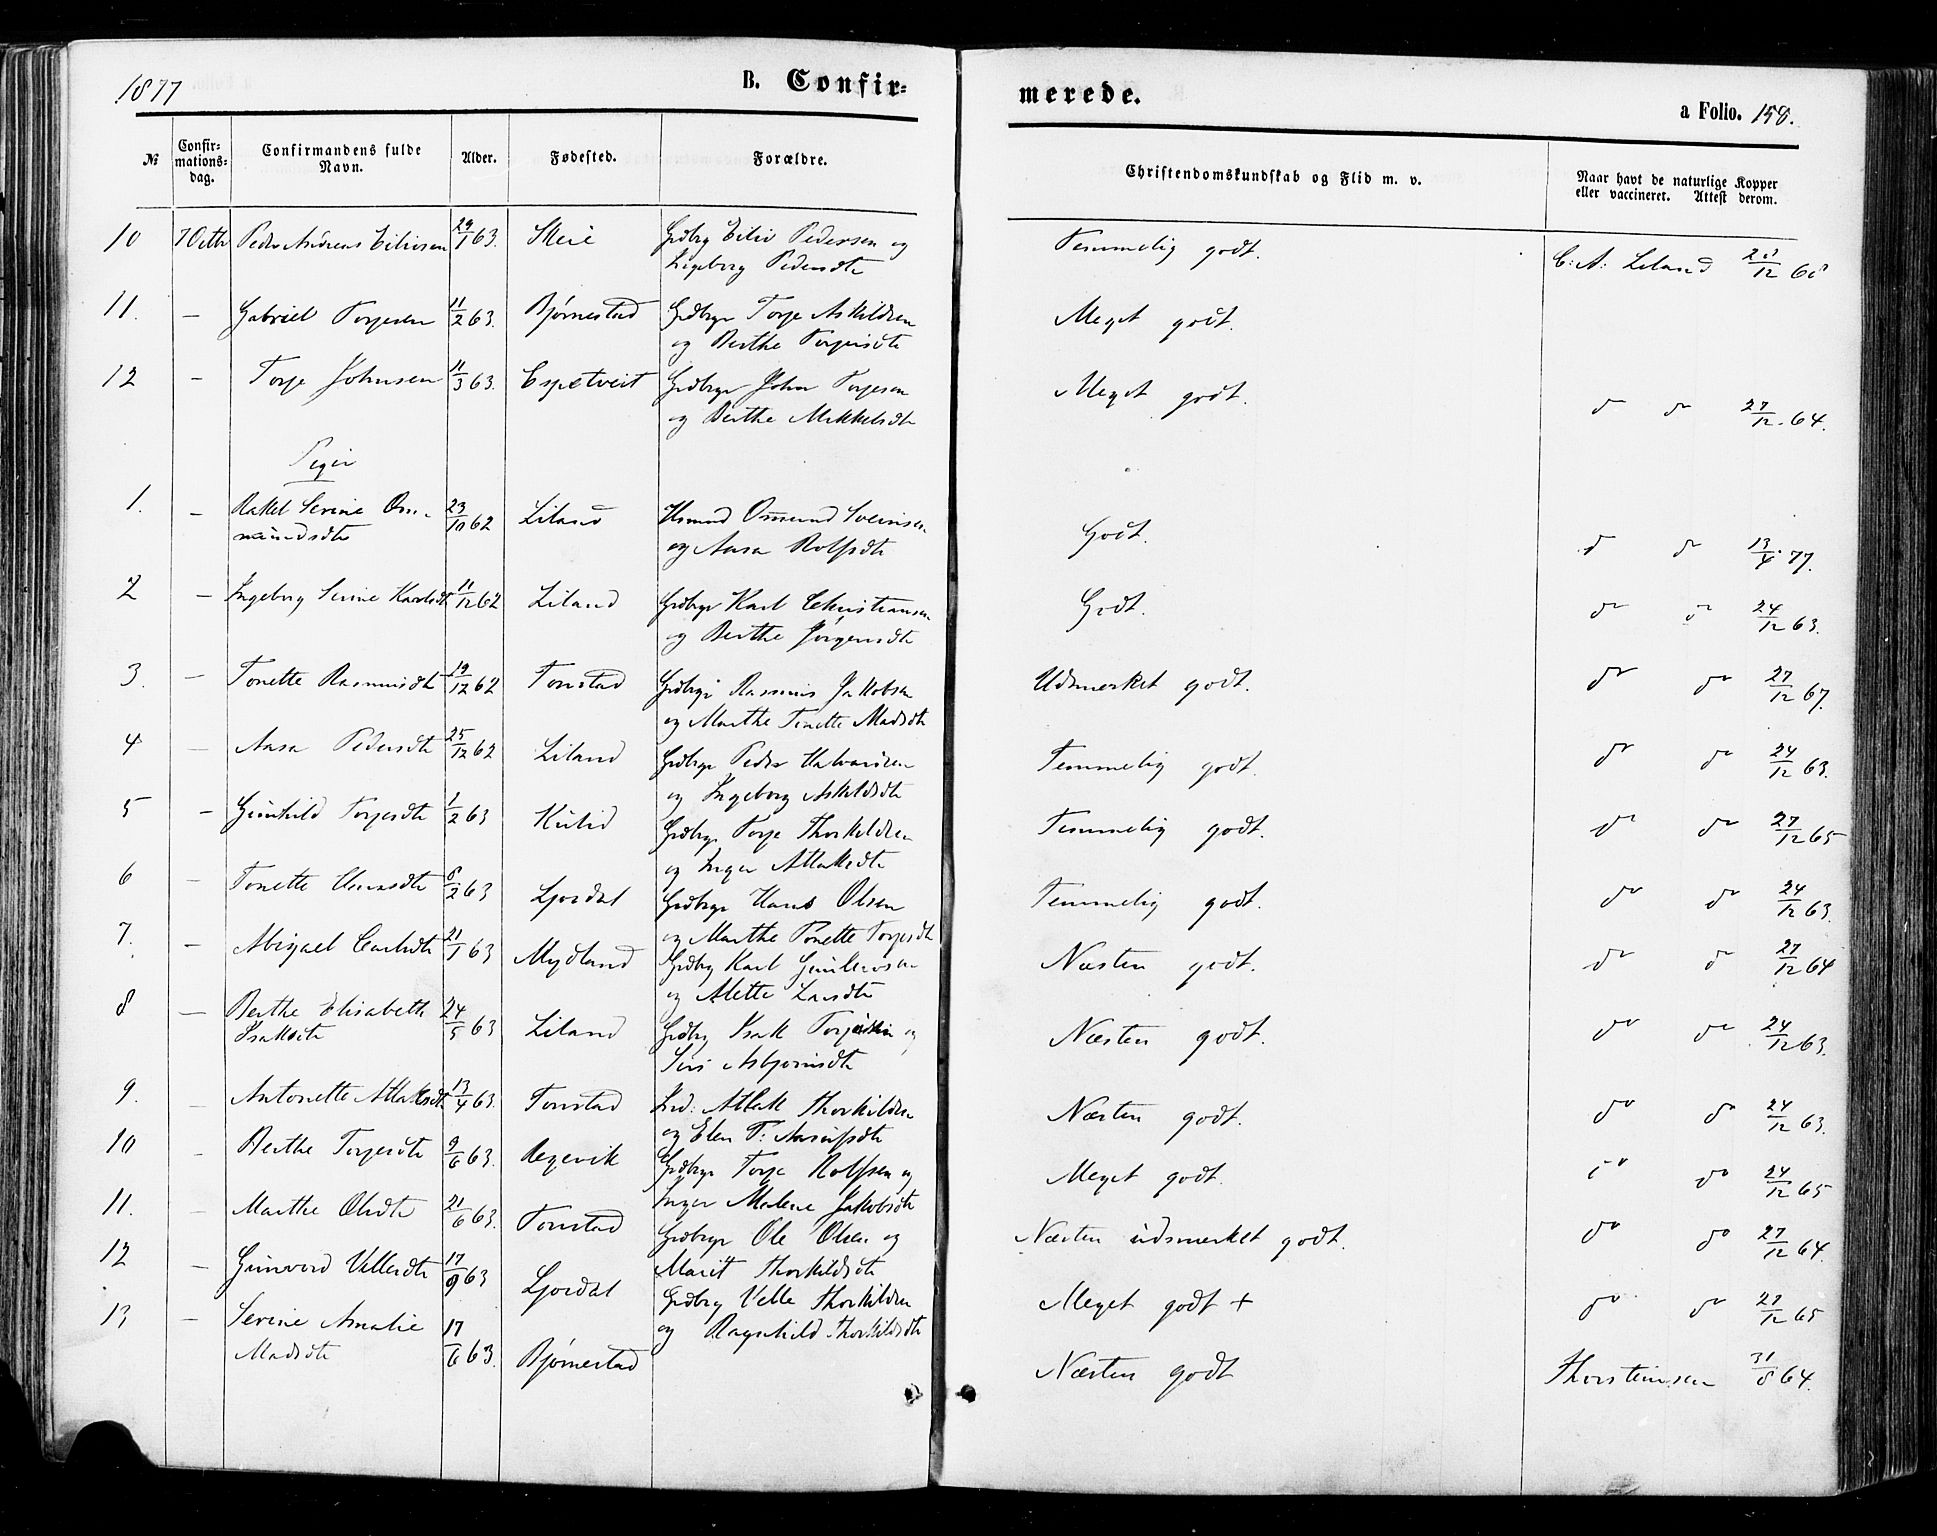 1877
B. Confir-
merede.
a Folio. 158.
№
Confir-
mations-
dag.
Confirmandens fulde
Navn.
Alder.
Fødested.
Forældre.
Christendomskundskab og Flid m. v.
Naar havt de naturlige Kopper
eller vaccineret. Attest derom.
10 7 Octbr Peder Andreas Eilivsen 29/1 63. Skeie Grdbrg Eiliv Pedersen og
Ingeborg Pedersdtr
Temmelig godt. C: A: Liland 12
11. — Gabriel Torjesen 11/2 63. Bjørnestad Grdbrgr Torje Askildsen
og Berthe Torjersdtr
Meget godt.
12 — Torje Johnsen 11/3 63. Espetveit Grdbrgr John Torjesen
og Berthe Mikkelsdtr
Meget godt. do do 27/12 64.
Piger
1. — Rakel Serine Os-
mundsdtr 23/10 62 Liland Husmd Osmund Sveinsen
og Aasa Rolfsdtr
Godt. do do 13/4 77.
2 — Ingeborg Serine Karlsdtr 11/12 62 Liland Grdbrgr Karl Christiansen
og Berthe Jørgensdtr
Godt. do do 24/12 63.
3. — Tonette Rasmusdtr 19/12 62 Tonstad Grdbrgr Rasmus Jakobsen
og Marthe Tonette Madsdtr
Udmerket godt. do do 27/12 67.
4 — Aasa Pedersdtr 25/12 62 Liland Grdbrgr Peder Halvorsen
og Ingeborg Askildsdtr
Temmelig godt. do do 24/12 63.
5 — Gunhild Torjesdtr 1/2 63 Kvlid Grdbrgr Torje Thorkildsen
og Inger Atlaksdtr
Temmelig godt. do do 27/12 65
6 — Tonette Hansdtr 8/2 63 Ljosdal Grdbrgr Hans Olsen
og Marthe Tonette Torjesdtr
Temmelig godt. do do 24/12 63.
7. — Abigael Carlsdtr 21/1 63 Mydland Grdbrg Karl Gunleivsen
og Alette Larsdtr
Næsten godt. do do 27/12 64
8 — Berthe Elisabeth
Isaksdtr 24/5 63 Liland Grdbrg Isak Torjersen og
Siri Asbjørnsdtr
Næsten godt. do do 24/12 63.
9. — Antonette Atlaksdtr 13/4 63. Tonstad Ind: Atlak Thorkildsen
og Elen T:
Næsten godt. do do 24/12 63.
10 — Berthe Torjesdtr 9/6 63. Regevik Grdbrgr Torje Rolfsen og
Inger Malene Jakobsdtr
Meget godt. do do 24/12 65
11. — Marthe Olsdtr 21/6 63. Tonstad Grdbrgr Ole Olsen og
Marit Thorkildsdtr
Næsten udsmerket godt. do do 27/12 64.
12 — Gunvord Vellesdtr 17/9 63 Ljosdal Grdbrg Velle Thorkildsen
og Ragnhild Thorkildsdtr
Meget godt + do do 27/12 65
13 — Serine Amalie
Madsdtr 17/6 63. Bjørnestad
Næsten godt Thorsteinsen 31/8 64.